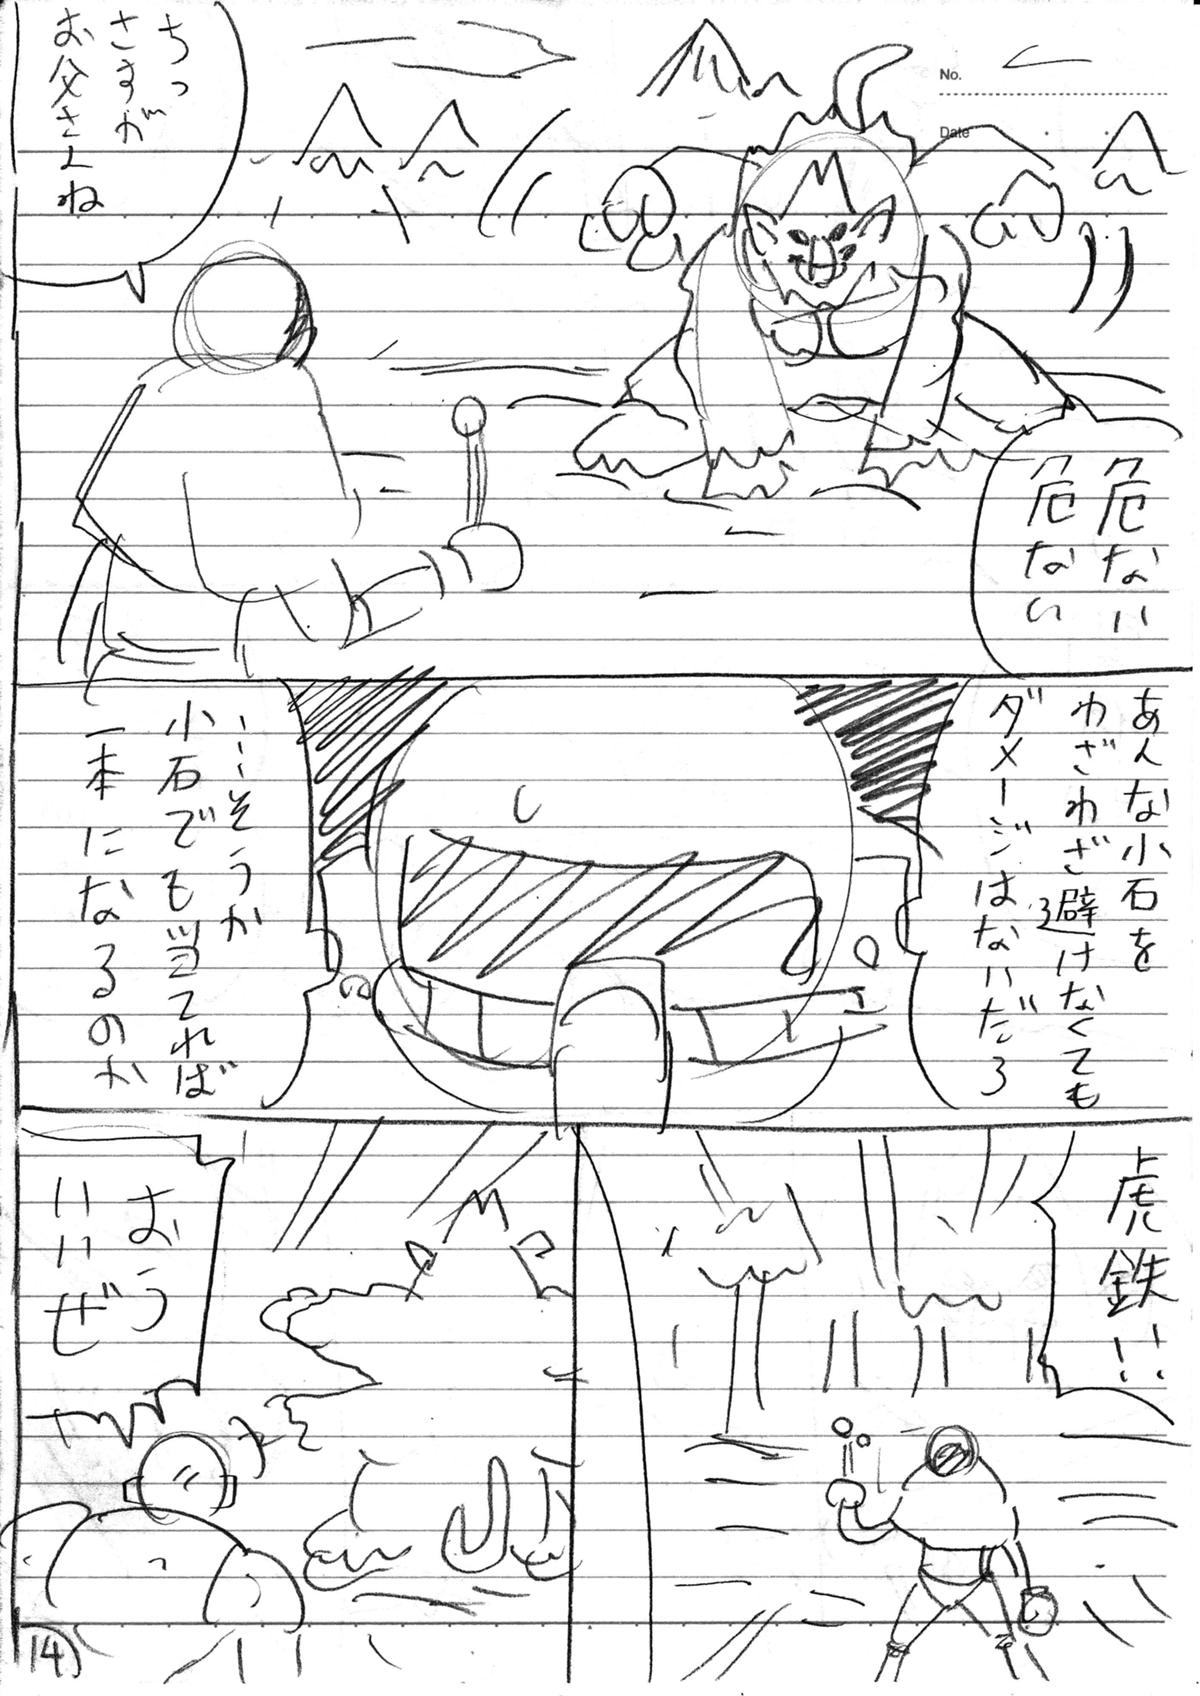 No.
Date
危ない
危ない
ちっ
さすが
お父さんね
あんな小石を
わざわざ避けなくても
ダメージはないだろ
う
……そうか
小石でも当てれば
一本になるのか
虎鉄!!
おう
いいぜ
14